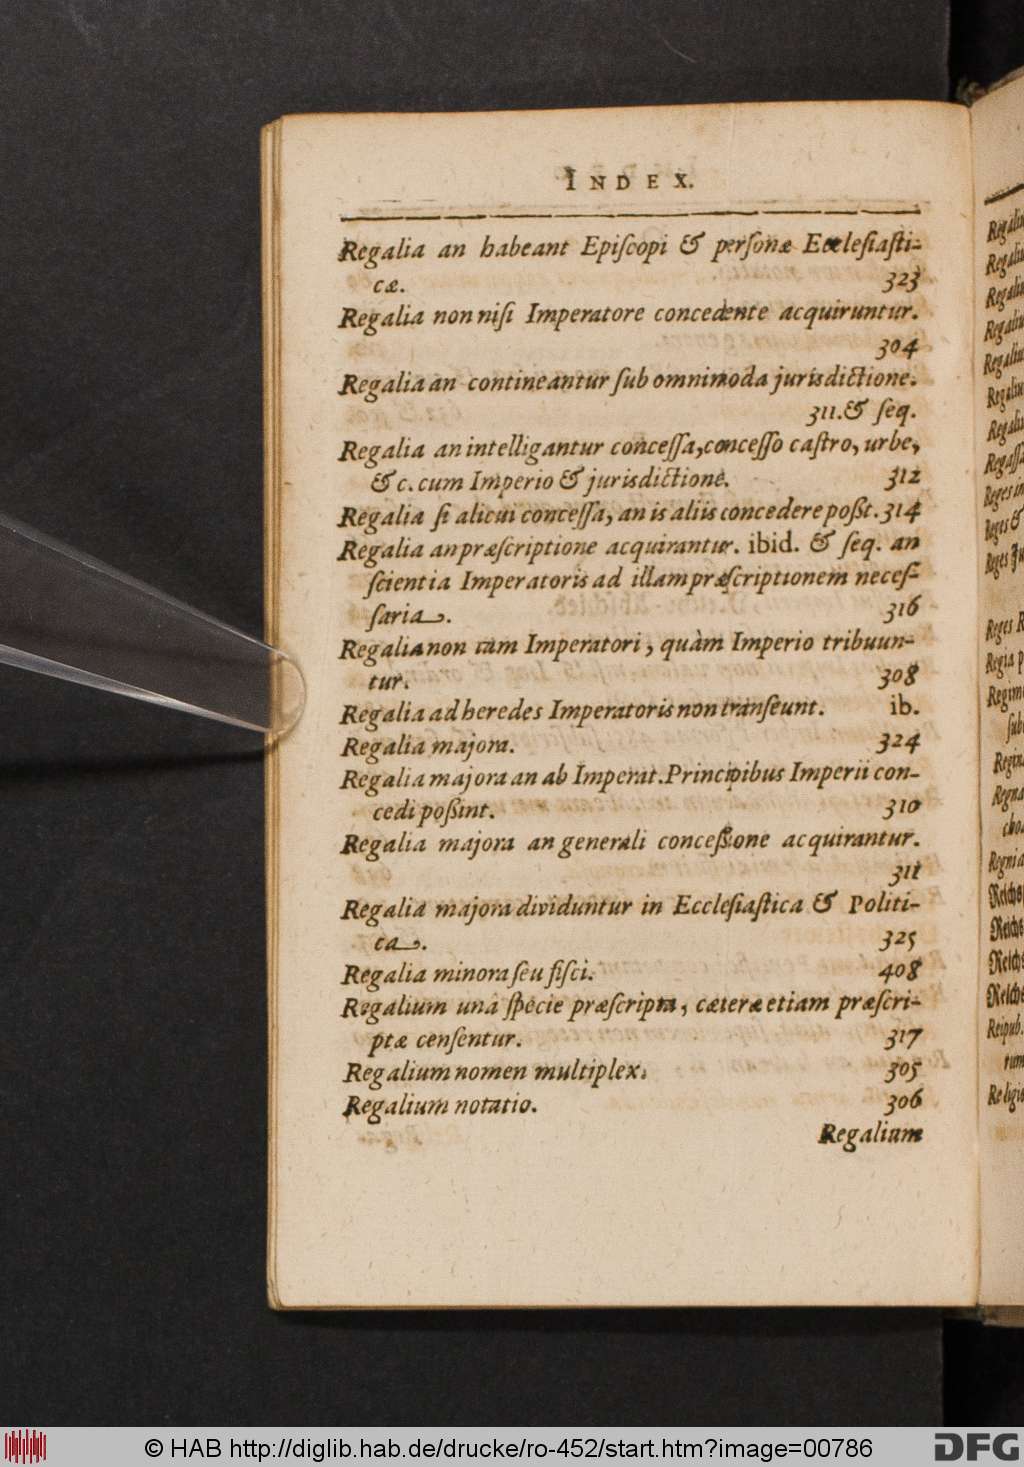 INDEX.
Regalia an habeant Epiſcopi & perſonæ Eccleſiaſti-
cæ. 323
Regalia non niſi Imperatore concedente acquiruntur.
304
Regalia an contineantur ſub omnimoda jurisdictione.
311. & ſeq.
Regalia an intelligantur conceſſa, conceſſo caſtro, urbe,
& c. cum Imperio & jurisdictione. 312
Regalia ſi alicui conceſſa, an is aliis concedere poßt. 314
Regalia an præſcriptione acquirantur. ibid. & ſeq. an
ſcientia Imperatoris ad illam præſcriptionem neceſ-
ſaria. 316
Regalia non tam Imperatori, quàm Imperio tribuun-
tur. 308
Regalia ad heredes Imperatoris non tranſeunt. ib.
Regalia majora. 324
Regalia majora an ab Imperat. Principibus Imperii con-
cedi poßint. 310
Regalia majora an generali conceßione acquirantur.
311
Regalia majora dividuntur in Eccleſiaſtica & Politi-
ca. 325
Regalia minora ſeu fiſci. 408
Regalium unâ ſpecie præſcripta, cæteræ etiam præſcri-
ptæ cenſentur. 317
Regalium nomen multiplex. 305
Regalium notatio. 306
Regalium
© HAB http://diglib.hab.de/drucke/ro-452/start.htm?image=00786
DFG